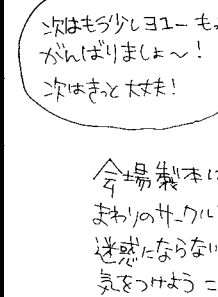 次はもう少しヨユーもっ
がんばりましょ〜!
次はきっと大丈夫!
会場製本は
まわりのサークル
迷惑にならない
気をつけよう